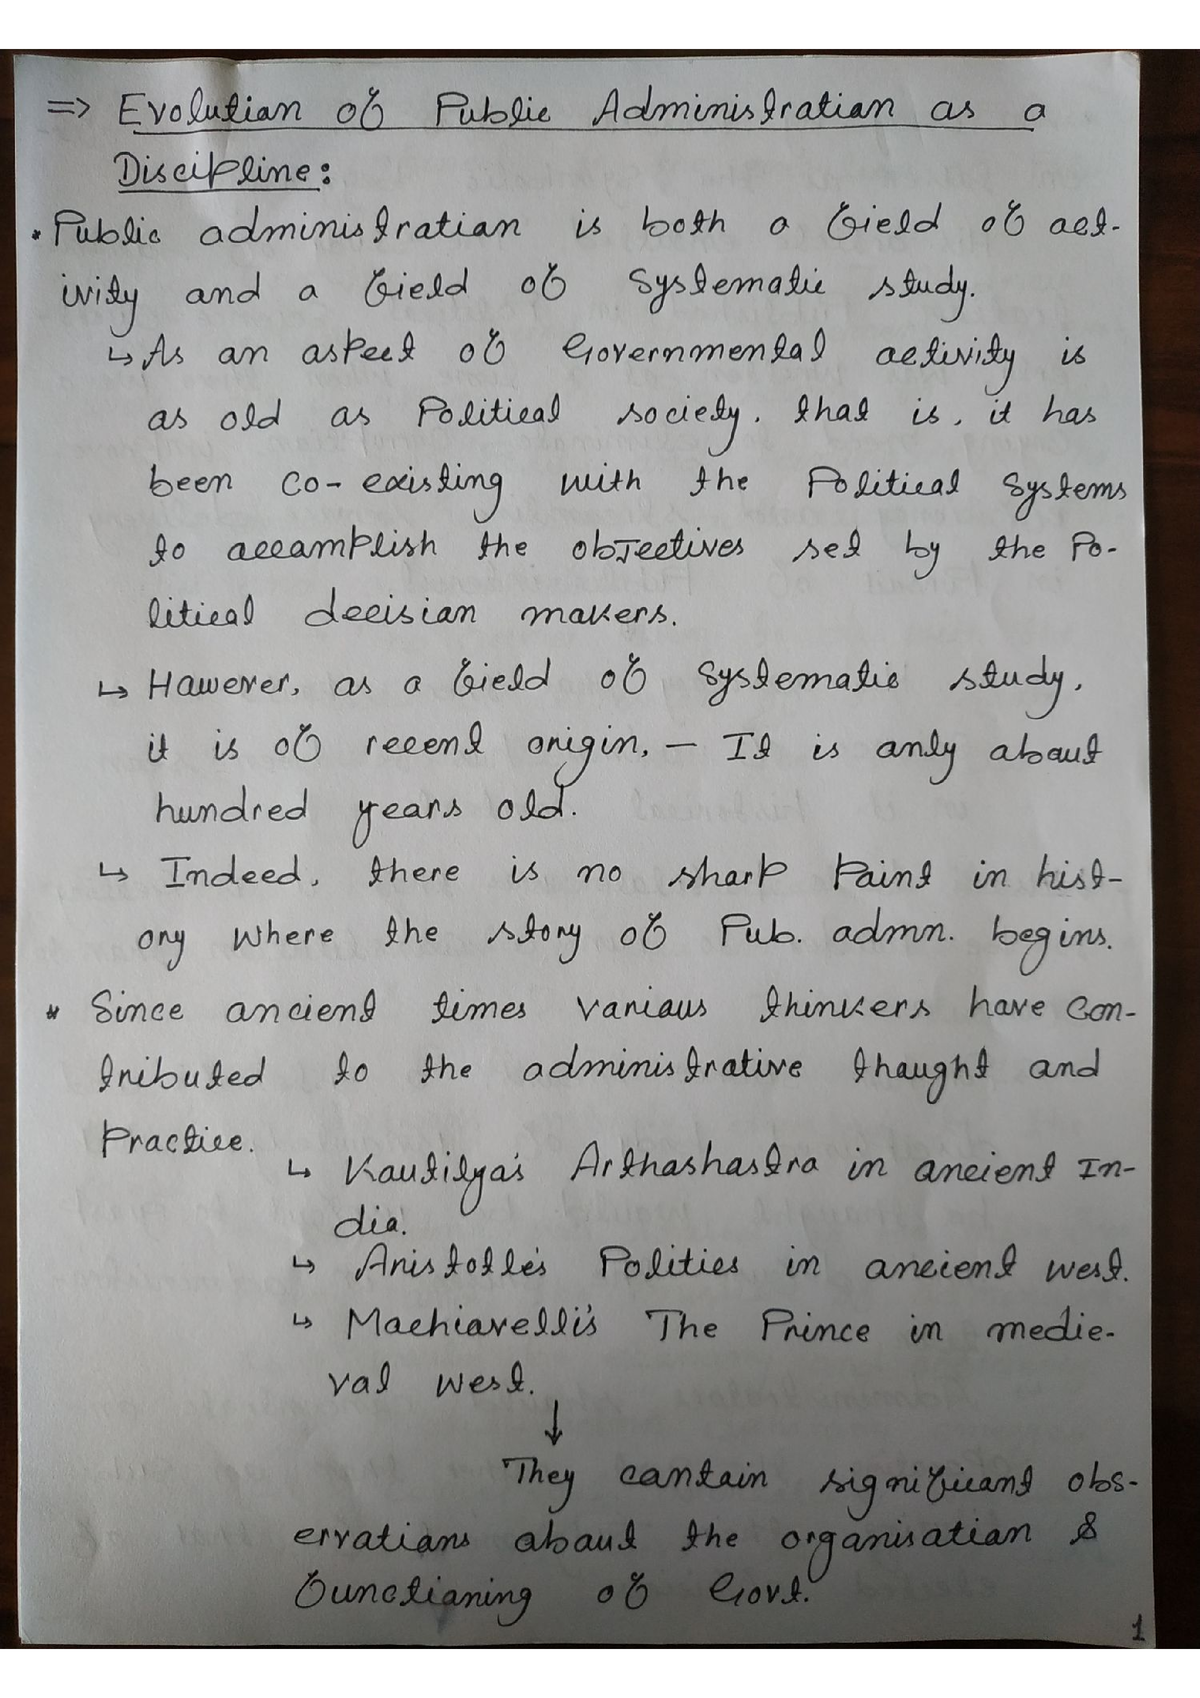 => Evolution of Public Administration as a
Discipline:
* Public administration is both a field of act-
ivity and a field of systematic study.
↳ As an aspect of Governmental activity is
as old as Political society. that is, it has
been co-existing with the Political Systems
to accomplish the objectives set by the Po-
litical decision makers.
↳ However, as a field of systematic study,
it is of recent origin, - It is only about
hundred years old.
↳ Indeed, there is no sharp Point in hist-
ory where the story of Pub. admn. begins.
* Since ancient times various thinkers have con-
tributed to the administrative thought and
Practice.
↳ Kautilya's Arthashastra in ancient In-
dia.
↳ Aristotle's Polities in ancient west.
↳ Machiavelli's The Prince in medie-
val west.
↓
They contain significant obs-
ervations about the organisation &
functioning of Govt.
1